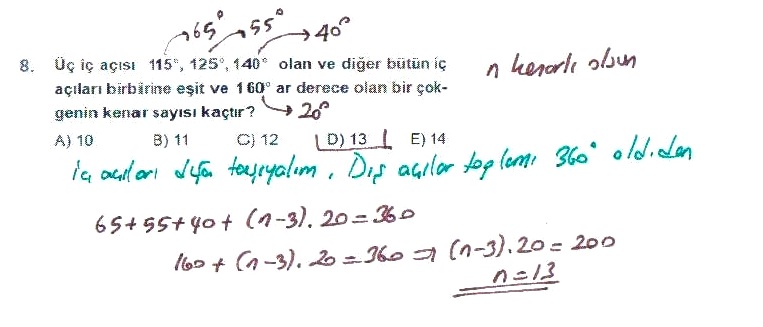 65° 55° 40°
8. Üç iç açısı 115°, 125°, 140° olan ve diğer bütün iç
açıları birbirine eşit ve 160° ar derece olan bir çok-
genin kenar sayısı kaçtır? → 20°
n kenarlı olsun
A) 10 B) 11 C) 12 D) 13 E) 14
İç açıları dışa taşıyalım. Dış açılar toplamı 360° old.dan
65+55+40+(n-3).20=360
160+(n-3).20=360⇒(n-3).20=200
n=13